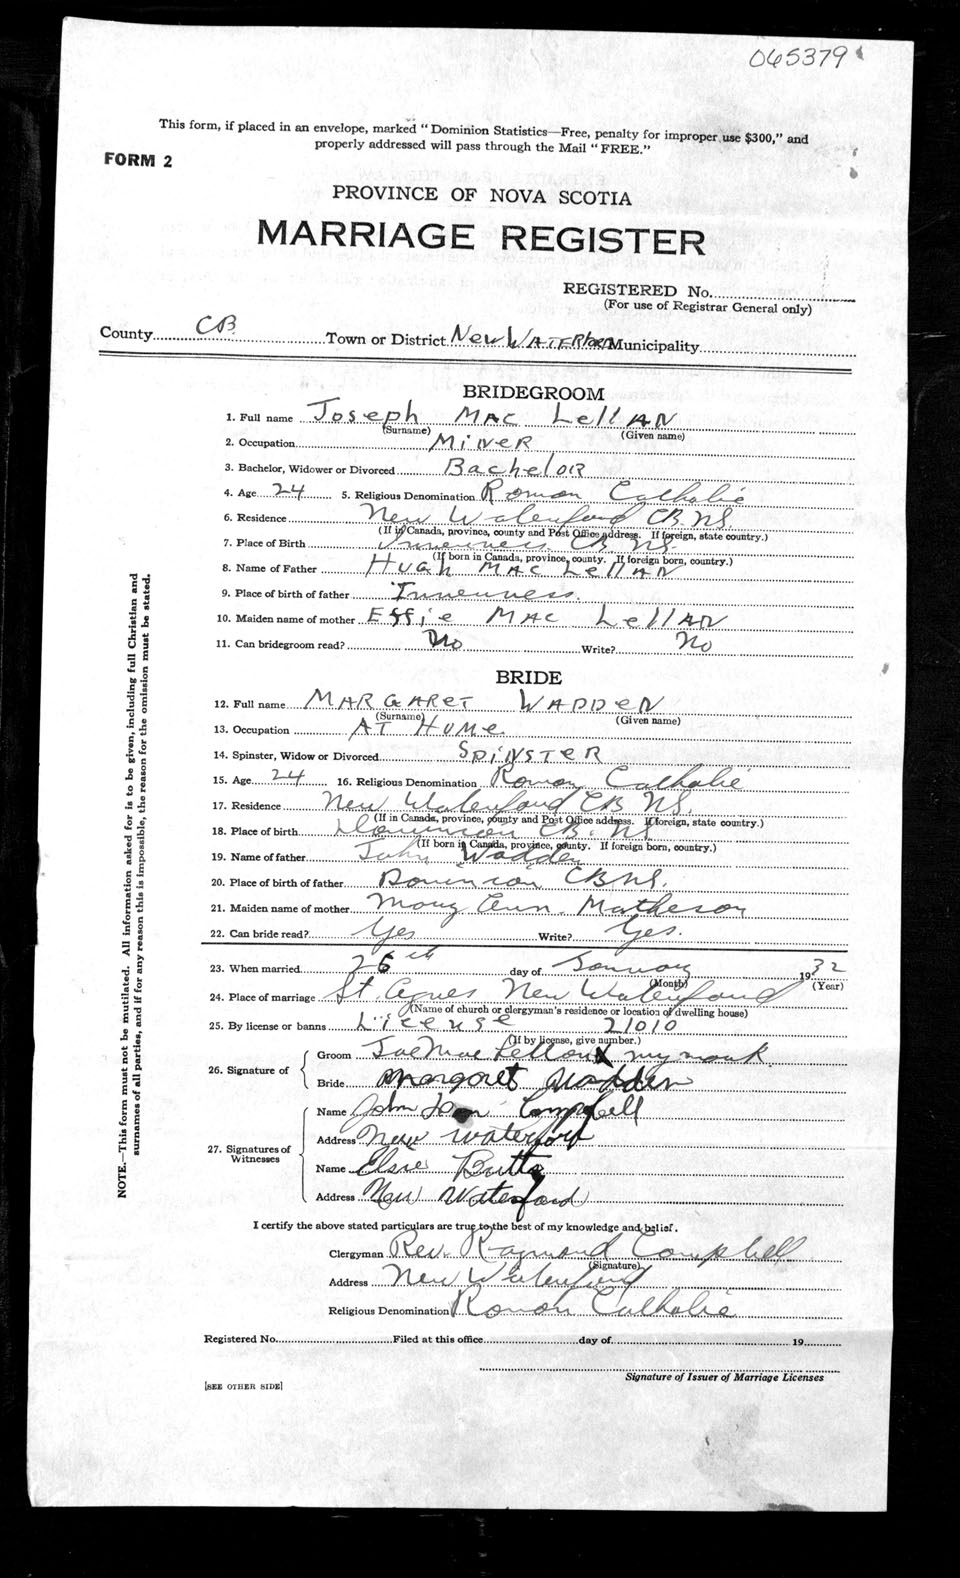 065379
This form, if placed in an envelope, marked "Dominion Statistics—Free, penalty for improper use $300," and
properly addressed will pass through the Mail "FREE."
FORM 2
PROVINCE OF NOVA SCOTIA
MARRIAGE REGISTER
REGISTERED No.
(For use of Registrar General only)
County CB Town or District New WATERford Municipality
BRIDEGROOM
1. Full name Joseph MAC LellAN
(Surname) (Given name)
2. Occupation MiNeR
3. Bachelor, Widower or Divorced BachelOR
4. Age 24 5. Religious Denomination Roman Catholic
6. Residence New Waterford CB. NS.
(If in Canada, province, county and Post Office address. If foreign, state country.)
7. Place of Birth Inverness CB NS.
(If born in Canada, province, county. If foreign born, country.)
8. Name of Father HUGH MAC LellAN
9. Place of birth of father Inverness.
10. Maiden name of mother Effie MAC LellAN
11. Can bridegroom read? No Write? No
BRIDE
12. Full name MARGAReT WADDeN
(Surname) (Given name)
13. Occupation AT HOMe
14. Spinster, Widow or Divorced SpiNSTER
15. Age 24 16. Religious Denomination Roman Catholic
17. Residence New Waterford CB NS.
(If in Canada, province, county and Post Office address. If foreign, state country.)
18. Place of birth Dominion CB. NS
(If born in Canada, province, county. If foreign born, country.)
19. Name of father John Wadden
20. Place of birth of father Dominion CB NS.
21. Maiden name of mother Mary Ann. Matheson
22. Can bride read? Yes Write? Yes.
23. When married 26th day of January 1932
(Month) (Year)
24. Place of marriage St. Agnes New Waterford
(Name of church or clergyman's residence or location of dwelling house)
25. By license or banns License 21010
(If by license, give number.)
26. Signature of
Groom Joe Mac Lellan X my mark
Bride Margaret Wadden
27. Signatures of Witnesses
Name John Campbell
Address New Waterford
Name Elsie Butts
Address New Waterford
I certify the above stated particulars are true to the best of my knowledge and belief.
Clergyman Rev. Raymond Campbell
(Signature)
Address New Waterford
Religious Denomination Roman Catholic
Registered No. Filed at this office day of 19
Signature of Issuer of Marriage Licenses
[SEE OTHER SIDE]
NOTE.—This form must not be mutilated. All information asked for is to be given, including full Christian and
surnames of all parties, and if for any reason this is impossible, the reason for the omission must be stated.